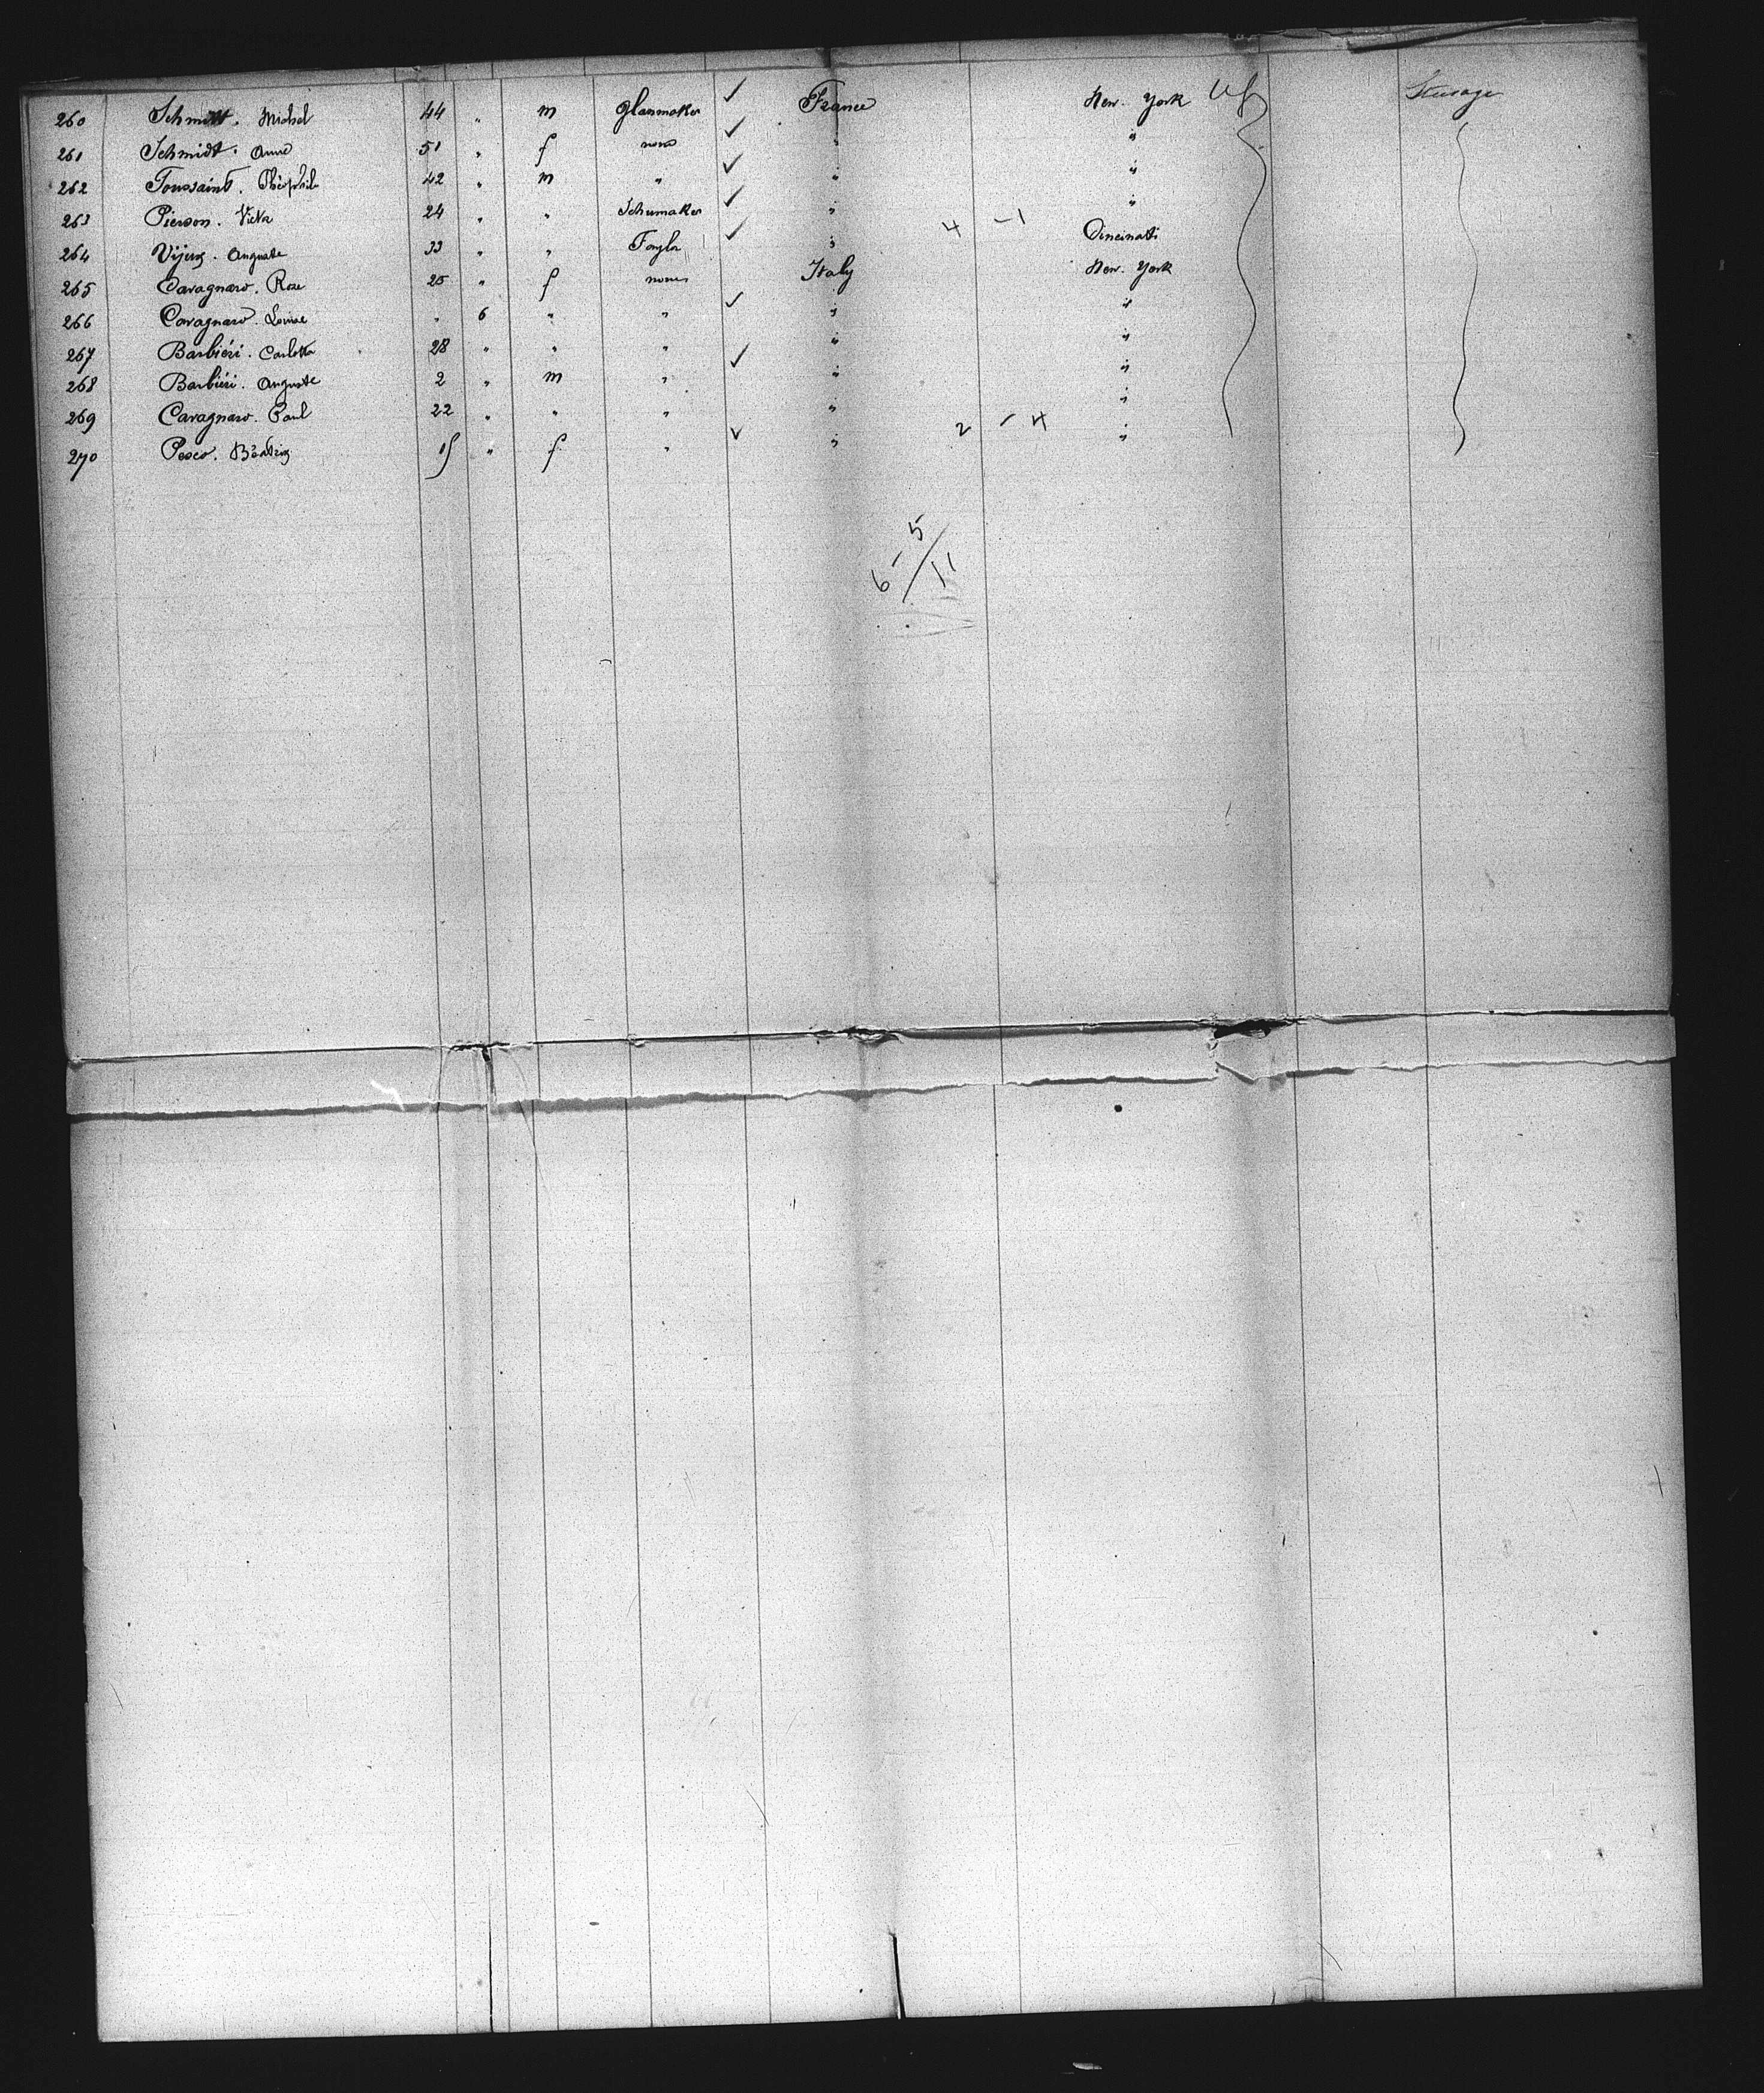 260 Schmidt. Michel 44 " m Glassmaker ✓ France New. York Steerage
261 Schmidt. Anne 51 " f none ✓ " "
262 Toussaint. Théophile 42 " m " ✓ " "
263 Pierson. Victor 24 " " Schumaker ✓ " "
264 Auguste 33 " " Taylor ✓ " 4 - 1 Cincinati
265 Cavagnaro. Rose 25 " f none Italy New. York
266 Cavagnaro. Louise " 6 " " ✓ " "
267 Barbiéri. Carlotta 28 " " " " "
268 Barbiéri. Auguste 2 " m " ✓ " "
269 Cavagnaro. Paul 22 " " " " "
270 Pesco. Béatrix " f " ✓ " 2 - 4 "
6 - 5 / 11